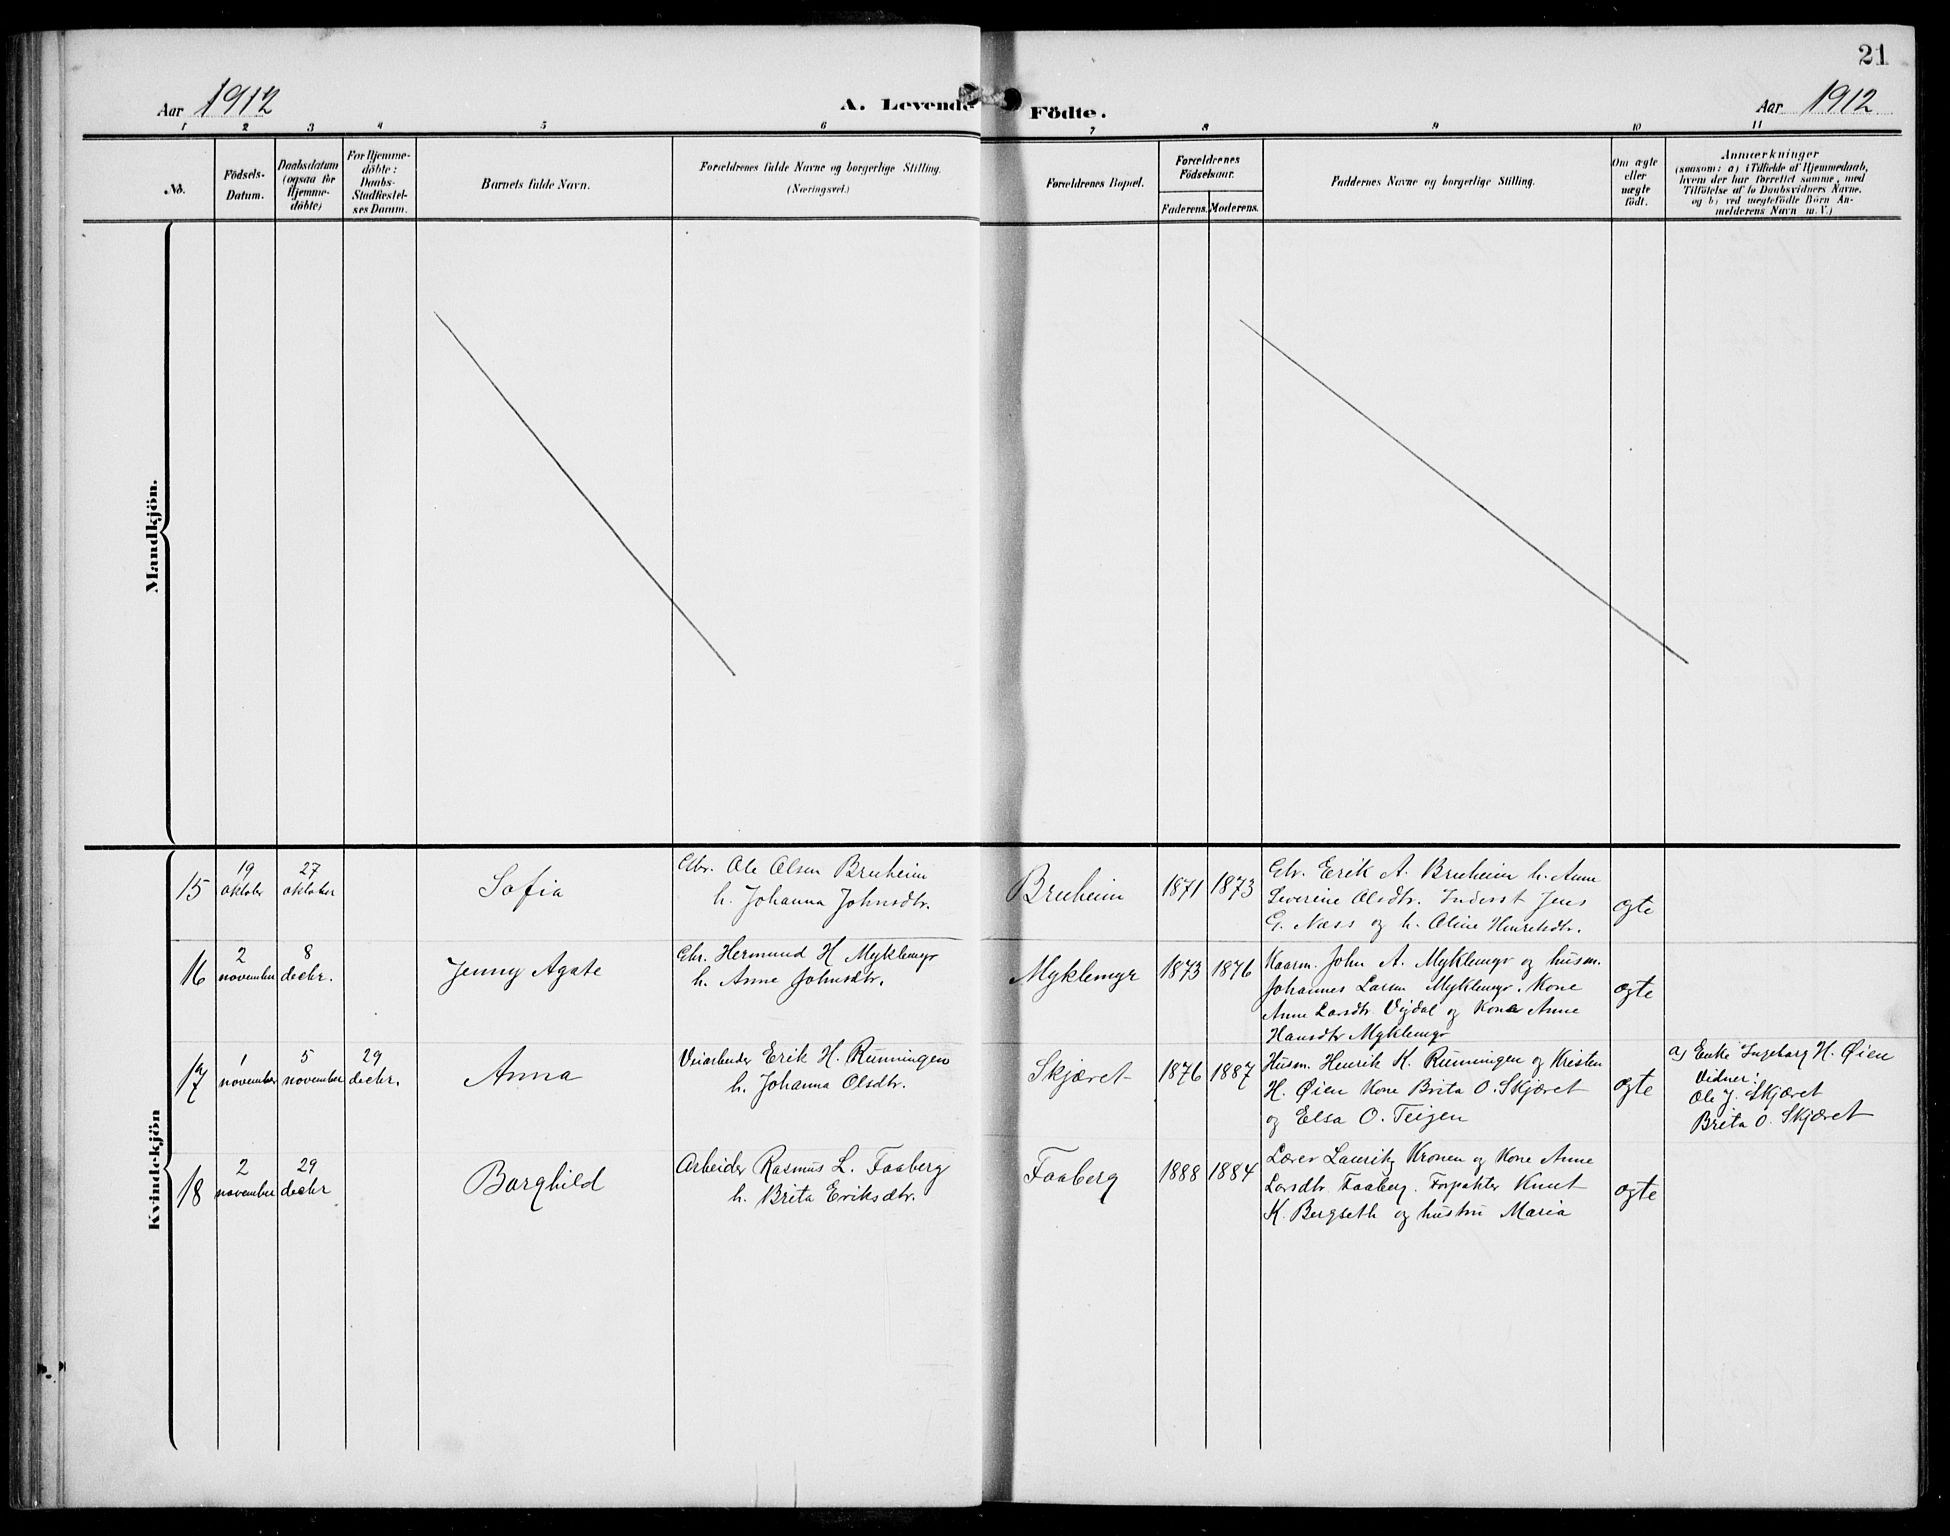 21
Aar 1912
A. Levende Födte.
Aar 1912
1 2 3 4 5 6 7 8 9 10 11
No.
Födsels-
Datum.
Daabsdatum
(ogsaa för
Hjemme-
döbte)
For Hjemme-
döbte:
Daabs-
Stadfæstel-
ses Datum.
Barnets fulde Navn.
Forældrenes fulde Navne og borgerlige Stilling.
(Næringsvei.)
Forældrenes Bopæl.
Forældrenes
Födselsaar.
Faderens. Moderens.
Faddernes Navne og borgerlige Stilling.
Om ægte
eller
uægte
födt.
Anmærkninger
(saasom: a) i Tilfælde af Hjemmedaab,
hvem der har forrettet samme, med
Tilföielse af to Daabsvidners Navne.
og b) ved uægtefödte Börn An-
melderens Navn m. V.)
Mandkjön.
Kvindekjön
15
19
oktober
27
oktober
Sofia
Gbr. Ole Olsen Bruheim
h. Johanna Johnsdtr.
Bruheim
1871 1873
Gbr. Erik A. Bruheim h. Anne
Severine Olsdtr. Inderst Jens
G. Næss og h. Oline Henriksdtr.
ægte
16
2
november
8
decbr.
Jenny Agate
Gbr. Hermund H Myklemyr
h. Anne Johnsdtr.
Myklemyr
1873 1876
Kaarm. John A. Myklemyr og husm.
Johannes Larsen Myklemyr. Kone
Anne Larsdtr. Vigdal og Kone Anne
Hansdtr Myklemyr
ægte
17
1
november
5
november
29
decbr.
Anna
Veiarbeider Erik H. Runningen
h. Johanna Olsdtr.
Skjæret
1876 1887
Husm. Henrik K. Runningen og Kristen
H. Øien Kone Brita O. Skjæret
og Elsa O. Teigen
ægte
a) Enke Ingeborg H. Øien
Vidner:
Ole J. Skjæret
Brita O. Skjæret
18
2
november
29
decbr
Borghild
Arbeider Rasmus L. Faaberg
h. Brita Eriksdtr.
Faaberg
1888 1884
Lærer Lauritz Kronen og Kone Anne
Larsdtr. Faaberg. Forpakter Knut
K. Bergseth og hustru Maria
ægte